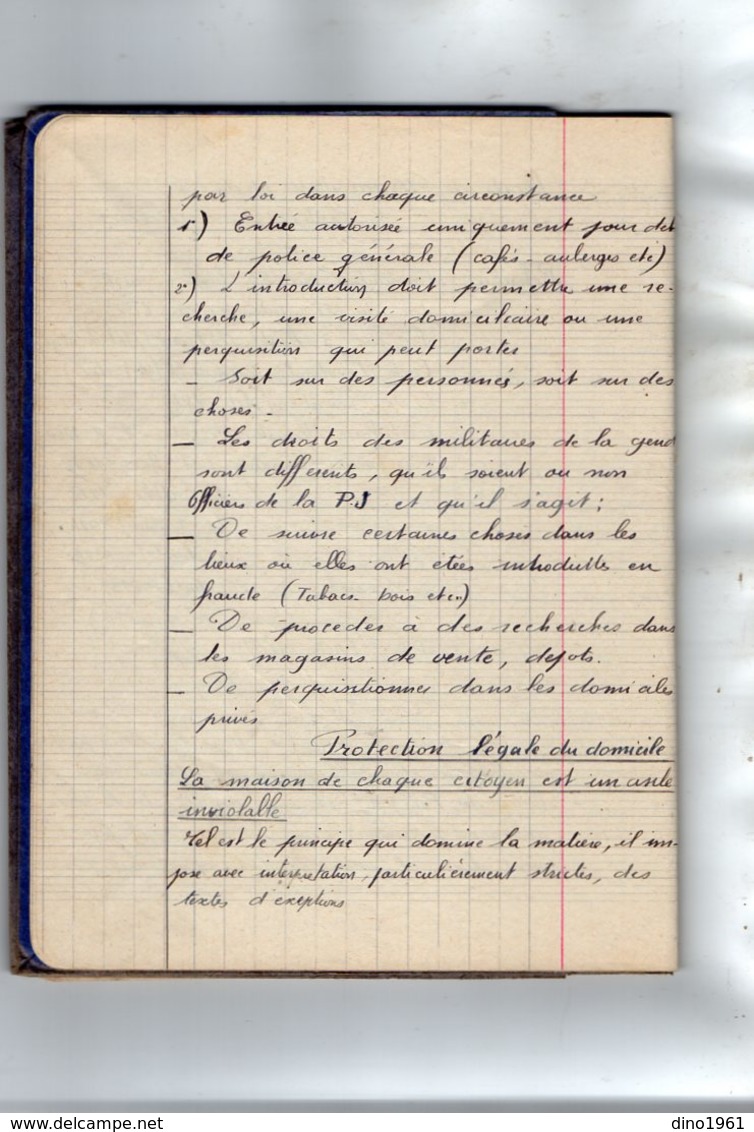 par loi dans chaque circonstance
1) Entrée autorisée uniquement pour det
de police générale (cafés - auberges etc)
2) L'introduction doit permettre une re-
cherche, une visite domiciliaire ou une
perquisition qui peut porter
- Soit sur des personnes, soit sur des
choses -
- Les droits des militaires de la gend
sont différents, qu'ils soient ou non
Officiers de la P.J et qu'il s'agit ;
- De suivre certaines choses dans les
lieux où elles ont étées introduites en
fraude (Tabacs - bois etc..)
- De proceder à des recherches dans
les magasins de vente, depots.
- De perquisitionner dans les domiciles
privés
Protection légale du domicile
La maison de chaque citoyen est un asile
inviolable
Tel est le principe qui domine la matière, il im-
pose avec interpretation, particulièrement strictes, des
textes d'exeptions
www.delcampe.net
dino1961